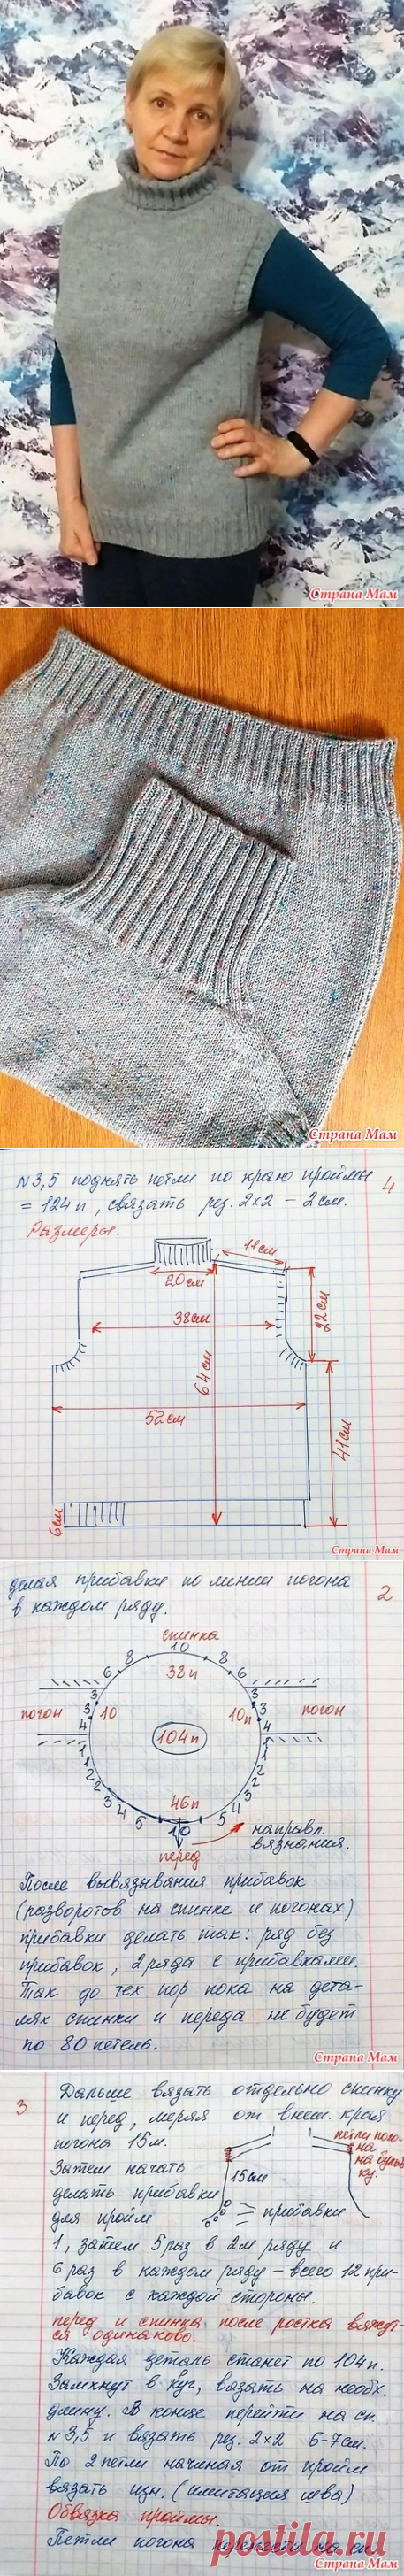 Страна Мам
Страна Мам
N 3,5 поднять петли по краю проймы 4
= 124 п, связать рез. 2х2 – 2 см.
Размеры.
11 см
20 см
38 см
22 см
64 см
52 см
41 см
6 см
Страна Мам
делая прибавки по линии погона 2
в каждом ряду.
спинка
10
8 8
38 п
6 6
3 3
погон 3 10 10 п 3 погон
4 104 п 4
1 1
1 1
2 2
2 2
3 3
4 46 п 4
5 10 5
направл.
вязания.
перед
После вывязывания прибавок
(разворотов на спинке и погонах)
прибавки делать так: ряд без
прибавок, 2 ряда с прибавками.
Так до тех пор пока на дета-
лях спинки и переда не будет
по 80 петель.
Страна Мам
3 Дальше вязать отдельно спинку
и перед, меряя от внеш. края
погона 15 м. петли пого-
на
на булав
ку.
Затем начать 15 см
делать прибавки
для пройм прибавки
1, затем 5 раз в 2м ряду и
6 раз в каждом ряду – всего 12 при-
бавок с каждой стороны.
перед и спинка после ростка вяжут-
ся одинаково.
Каждая деталь станет по 104 п.
Замкнут в круг, вязать на необх.
длину. В конце перейти на сп.
N 3,5 и вязать рез. 2х2 6-7 см.
По 2 петли начиная от пройм
вязать изн. (имитация шва)
Обвязка проймы.
Петли погона перенести на сп.
postila.ru
Страна Мам